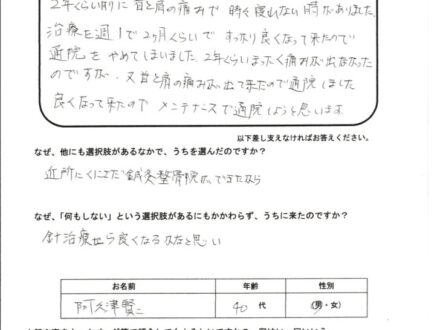 2年くらい前に首と肩の痛みで時々寝れない時がありました。
治療を週1で2ヶ月くらいですっかり良くなって来たので
通院をやめてしまいました。2年くらいまったく痛みが出なかった
のですが、又首と肩の痛みが出て来たので通院しました
良くなって来たのでメンテナンスで通院しようと思います
以下差し支えなければお答えください。
なぜ、他にも選択肢があるなかで、うちを選んだのですか?
近所にくにさだ鍼灸整骨院ができたから
なぜ、「何もしない」という選択肢があるにもかかわらず、うちに来たのですか?
針治療なら良くなるかなと思い
お名前 年齢 性別
阿久津賢二 40 代 (男・女)